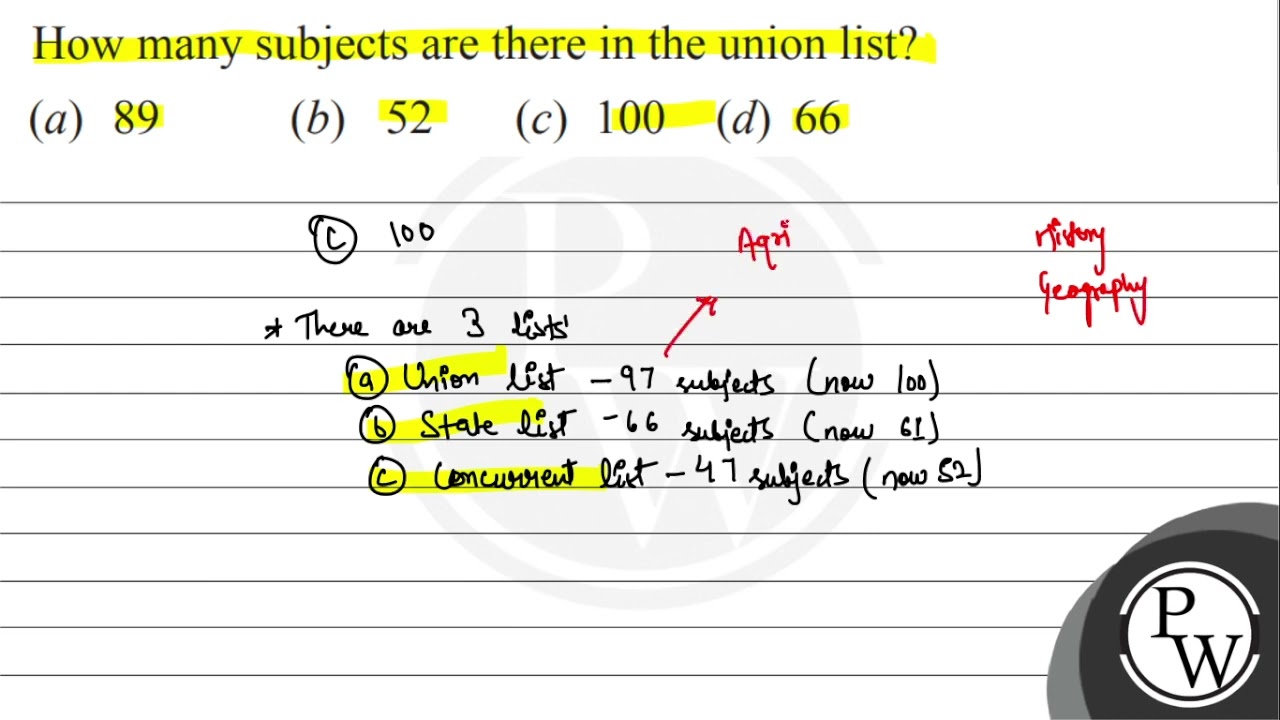 How many subjects are there in the union list?
(a) 89 (b) 52 (c) 100 (d) 66
(c) 100
Agri
History
Geography
* There are 3 lists'
(a) Union list - 97 subjects (now 100)
(b) State list - 66 subjects (now 61)
(c) Concurrent list - 47 subjects (now 52)
PW